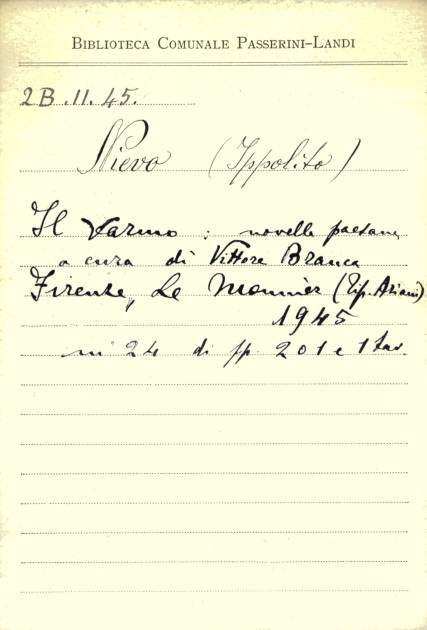 BIBLIOTECA COMUNALE PASSERINI-LANDI
2B.II.45.
Nievo (Ippolito)
Il Varmo : novella paesana
a cura di Vittore Branca
Firenze, Le Monnier (Tip. Ariani)
1945
in 24 di pp. 201 e 1 tav.